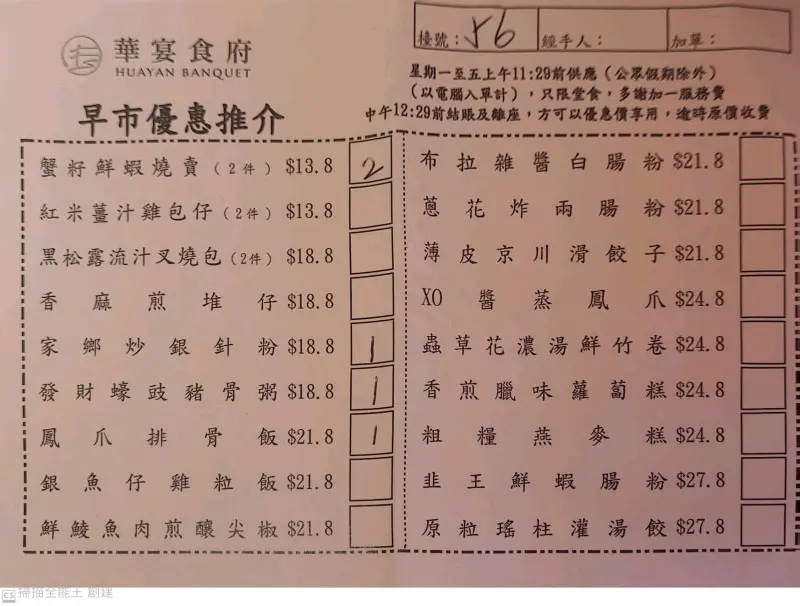 華宴食府
HUAYAN BANQUET
早市優惠推介
檯號：56
經手人：
加單：
星期一至五上午11:29前供應（公眾假期除外）
（以電腦入單計），只限堂食，多謝加一服務費
中午12:29前結賬及離座，方可以優惠價享用，逾時原價收費
蟹籽鮮蝦燒賣（2件）$13.8 2
紅米薑汁雞包仔（2件）$13.8
黑松露流汁叉燒包（2件）$18.8
香麻煎堆仔 $18.8
家鄉炒銀針粉 $18.8 1
發財蠔豉豬骨粥 $18.8 1
鳳爪排骨飯 $21.8 1
銀魚仔雞粒飯 $21.8
鮮鯪魚肉煎釀尖椒 $21.8
布拉雜醬白腸粉 $21.8
蔥花炸兩腸粉 $21.8
薄皮京川滑餃子 $21.8
XO醬蒸鳳爪 $24.8
蟲草花濃湯鮮竹卷 $24.8
香煎臘味蘿蔔糕 $24.8
粗糧燕麥糕 $24.8
韭王鮮蝦腸粉 $27.8
原粒瑤柱灌湯餃 $27.8
CS 掃描全能王 創建